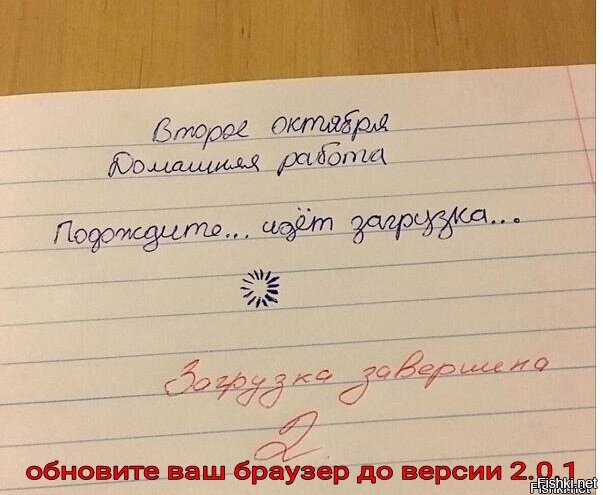 Второе октября
Домашняя работа
Подождите... идёт загрузка...
Загрузка завершена
2
обновите ваш браузер до версии 2.0.1
Fishki.net
Fishki.net